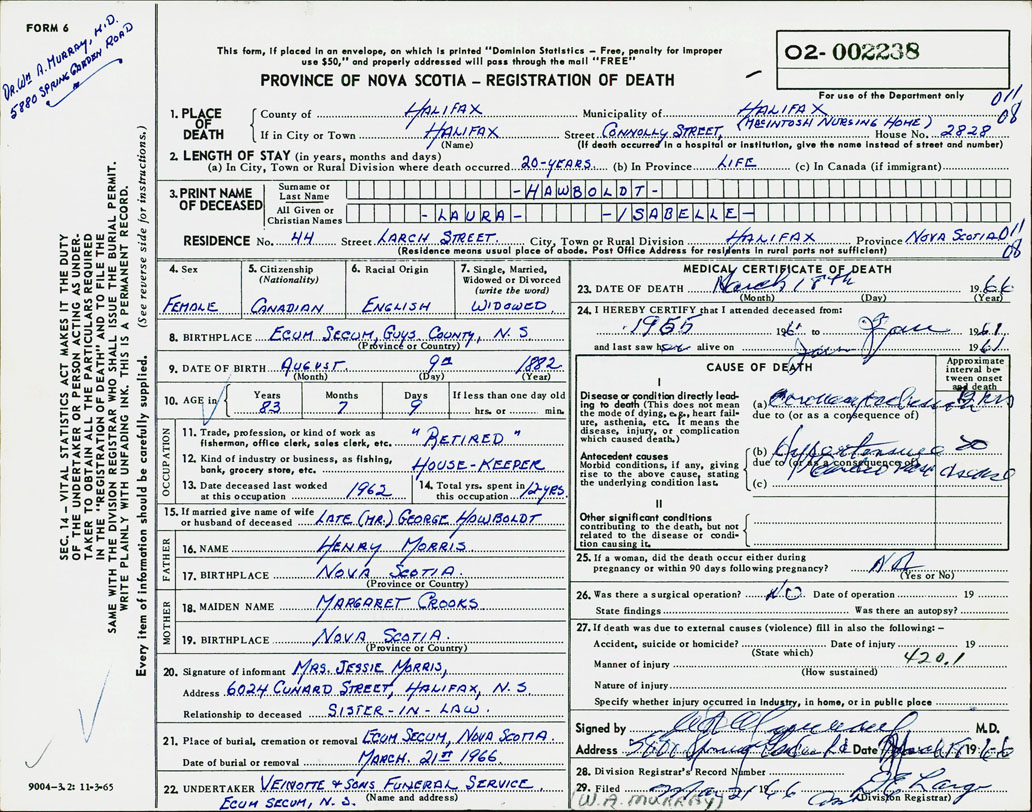 FORM 6
DR. WM A. MURRAY, M.D.
5880 SPRING GARDEN ROAD
This form, if placed in an envelope, on which is printed "Dominion Statistics – Free, penalty for improper
use $50," and properly addressed will pass through the mail "FREE"
PROVINCE OF NOVA SCOTIA – REGISTRATION OF DEATH
02- 002238
For use of the Department only
011
08
1. PLACE OF DEATH
County of HALIFAX Municipality of HALIFAX
(MACINTOSH NURSING HOME)
If in City or Town HALIFAX Street CONNOLLY STREET, House No. 2828
(Name) (If death occurred in a hospital or institution, give the name instead of street and number)
2. LENGTH OF STAY (in years, months and days)
(a) In City, Town or Rural Division where death occurred 20-YEARS (b) In Province LIFE (c) In Canada (if immigrant)
3. PRINT NAME OF DECEASED
Surname or Last Name -HAWBOLDT-
All Given or Christian Names -LAURA- -ISABELLE-
RESIDENCE No. 44 Street LARCH STREET. City, Town or Rural Division HALIFAX Province NOVA SCOTIA 011
08
(Residence means usual place of abode. Post Office Address for residents in rural parts not sufficient)
4. Sex
FEMALE
5. Citizenship
(Nationality)
CANADIAN
6. Racial Origin
ENGLISH
7. Single, Married,
Widowed or Divorced
(write the word)
WIDOWED
8. BIRTHPLACE ECUM SECUM, GUYS. COUNTY, N.S
(Province or Country)
9. DATE OF BIRTH AUGUST. 9th 1882
(Month) (Day) (Year)
10. AGE in Years Months Days If less than one day old
83 7 9 hrs. or min.
OCCUPATION
11. Trade, profession, or kind of work as
fisherman, office clerk, sales clerk, etc. "RETIRED"
12. Kind of industry or business, as fishing,
bank, grocery store, etc. HOUSE-KEEPER
13. Date deceased last worked
at this occupation 1962
14. Total yrs. spent in
this occupation 12-YRS.
15. If married give name of wife
or husband of deceased LATE (MR.) GEORGE HAWBOLDT
FATHER
16. NAME HENRY MORRIS.
17. BIRTHPLACE NOVA SCOTIA.
(Province or Country)
MOTHER
18. MAIDEN NAME MARGARET CROOKS
19. BIRTHPLACE NOVA SCOTIA.
(Province or Country)
20. Signature of informant MRS. JESSIE MORRIS,
Address 6024 CUNARD STREET, HALIFAX, N.S
Relationship to deceased SISTER-IN-LAW.
21. Place of burial, cremation or removal ECUM SECUM, NOVA SCOTIA.
Date of burial or removal MARCH. 21st 1966
22. UNDERTAKER VEINOTTE & SONS FUNERAL SERVICE.
(Name and address)
ECUM SECUM, N.S.
MEDICAL CERTIFICATE OF DEATH
23. DATE OF DEATH March 18th 1966
(Month) (Day) (Year)
24. I HEREBY CERTIFY that I attended deceased from:
1955 196 to Jan 1961
and last saw her alive on Jan 1961
CAUSE OF DEATH
Approximate interval between onset and death
I
Disease or condition directly leading to death (This does not mean the mode of dying, e.g., heart failure, asthenia, etc. It means the disease, injury, or complication which caused death.)
(a) Coronary occlusion
due to (or as a consequence of)
Antecedent causes
Morbid conditions, if any, giving rise to the above cause, stating the underlying condition last.
(b) Hypertensive
due to (or as a consequence of)
(c) disease
II
Other significant conditions
contributing to the death, but not related to the disease or condition causing it.
25. If a woman, did the death occur either during
pregnancy or within 90 days following pregnancy? NA
(Yes or No)
26. Was there a surgical operation? NO Date of operation 19
State findings Was there an autopsy?
27. If death was due to external causes (violence) fill in also the following: –
Accident, suicide or homicide? Date of injury 19
(State which)
420.1
Manner of injury
(How sustained)
Nature of injury
Specify whether injury occurred in Industry, in home, or in public place
Signed by M.D.
Address 5880 Spring Garden Rd Date March 1966
28. Division Registrar's Record Number
29. Filed Mar 21 1966
(Division Registrar)
(W. A. MURRAY)
SEC. 14 – VITAL STATISTICS ACT MAKES IT THE DUTY
OF THE UNDERTAKER OR PERSON ACTING AS UNDER-
TAKER TO OBTAIN ALL THE PARTICULARS REQUIRED
IN THE "REGISTRATION OF DEATH" AND TO FILE THE
SAME WITH THE DIVISION REGISTRAR WHO SHALL ISSUE THE BURIAL PERMIT.
WRITE PLAINLY WITH UNFADING INK. THIS IS A PERMANENT RECORD.
Every item of information should be carefully supplied. (See reverse side for instructions.)
9004–3.2: 11-3-65